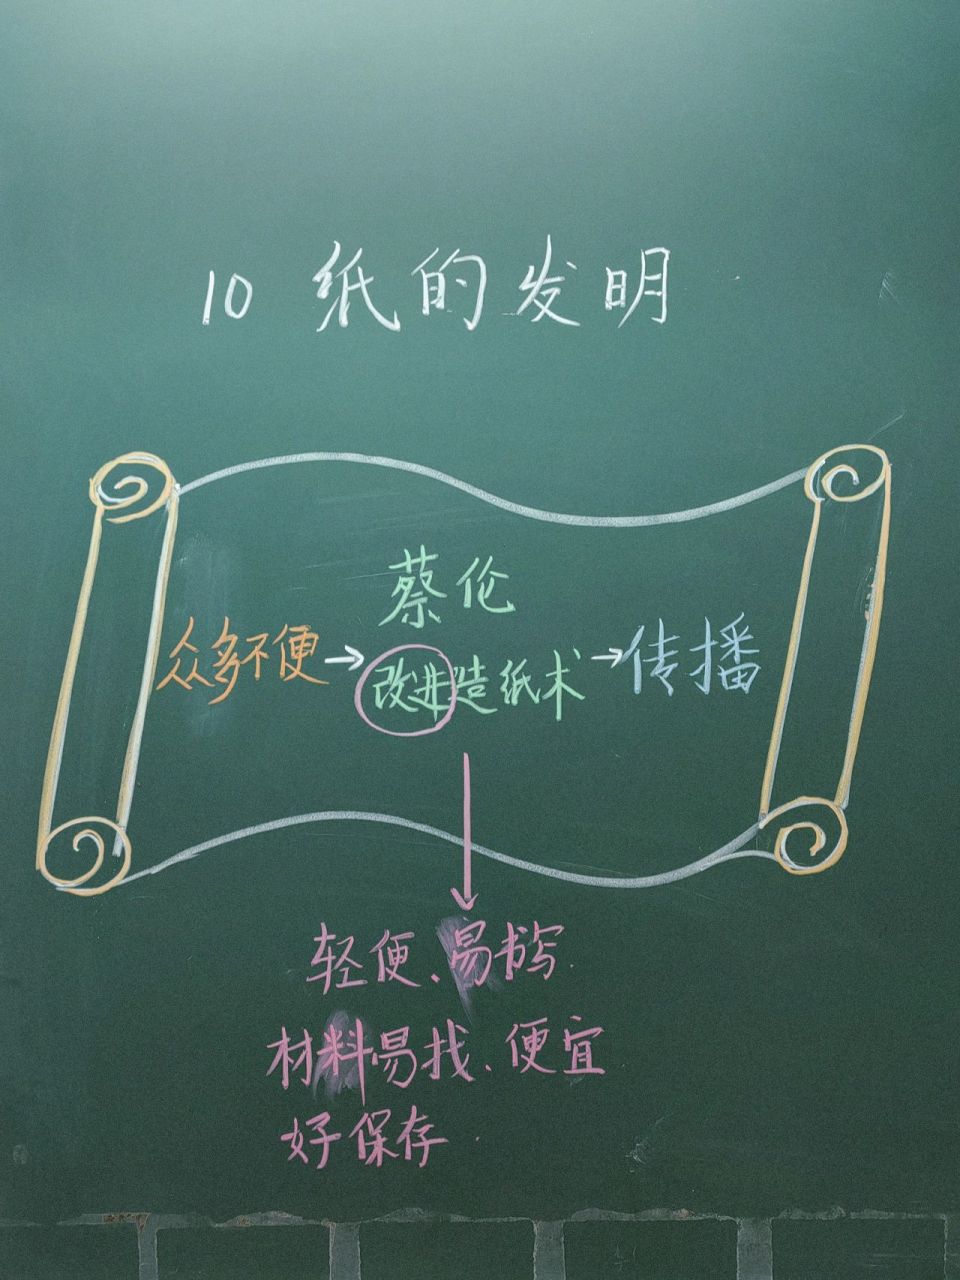 10 纸的发明
蔡伦
众多不便→改进造纸术→传播
轻便、易书写
材料易找、便宜
好保存